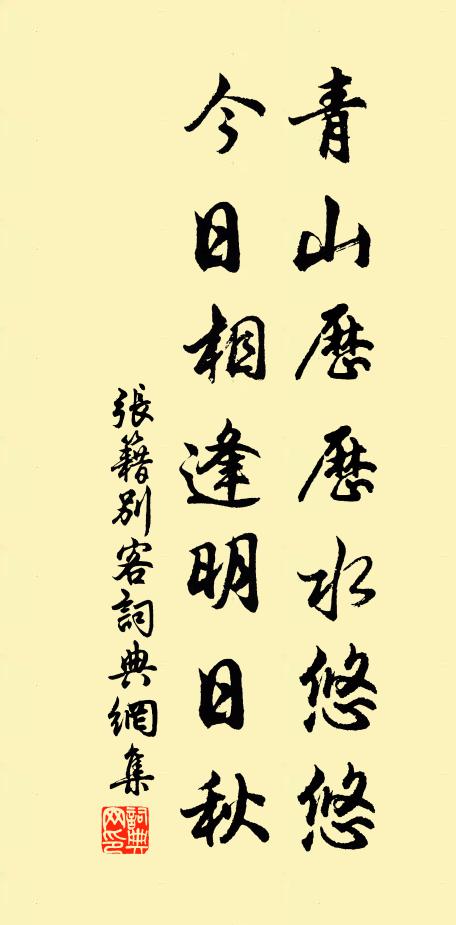 青山歷歷水悠悠
今日相逢明日秋
張籍別客詞典網集
詞典網印